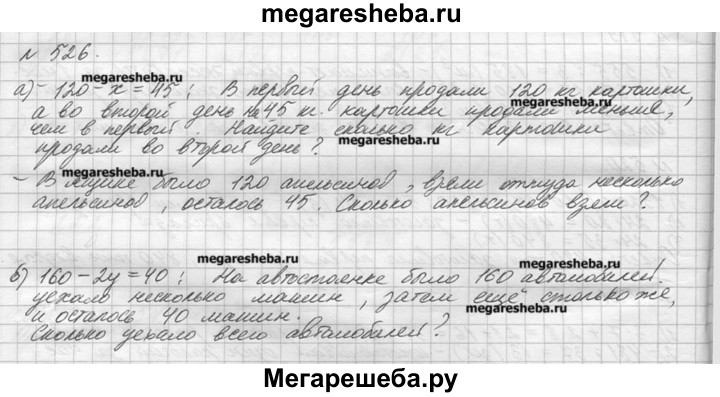 megaresheba.ru
№ 526.
megaresheba.ru
а) - 120 - x = 45 ; В первый день продали 120 кг картошки,
megaresheba.ru
а во второй день на 45 кг. картошки продали меньше,
чем в первый. Найдите сколько кг картошки
megaresheba.ru
продали во второй день?
megaresheba.ru
- В ящике было 120 апельсинов, взяли оттуда несколько
апельсинов, осталось 45. Сколько апельсинов взяли?
megaresheba.ru
б) 160 - 2y = 40 ; На автостоянке было 160 автомобилей.
уехало несколько машин, затем ещё столько же,
megaresheba.ru
и осталось 40 машин.
Сколько уехало всего автомобилей?
Мегарешеба.ру